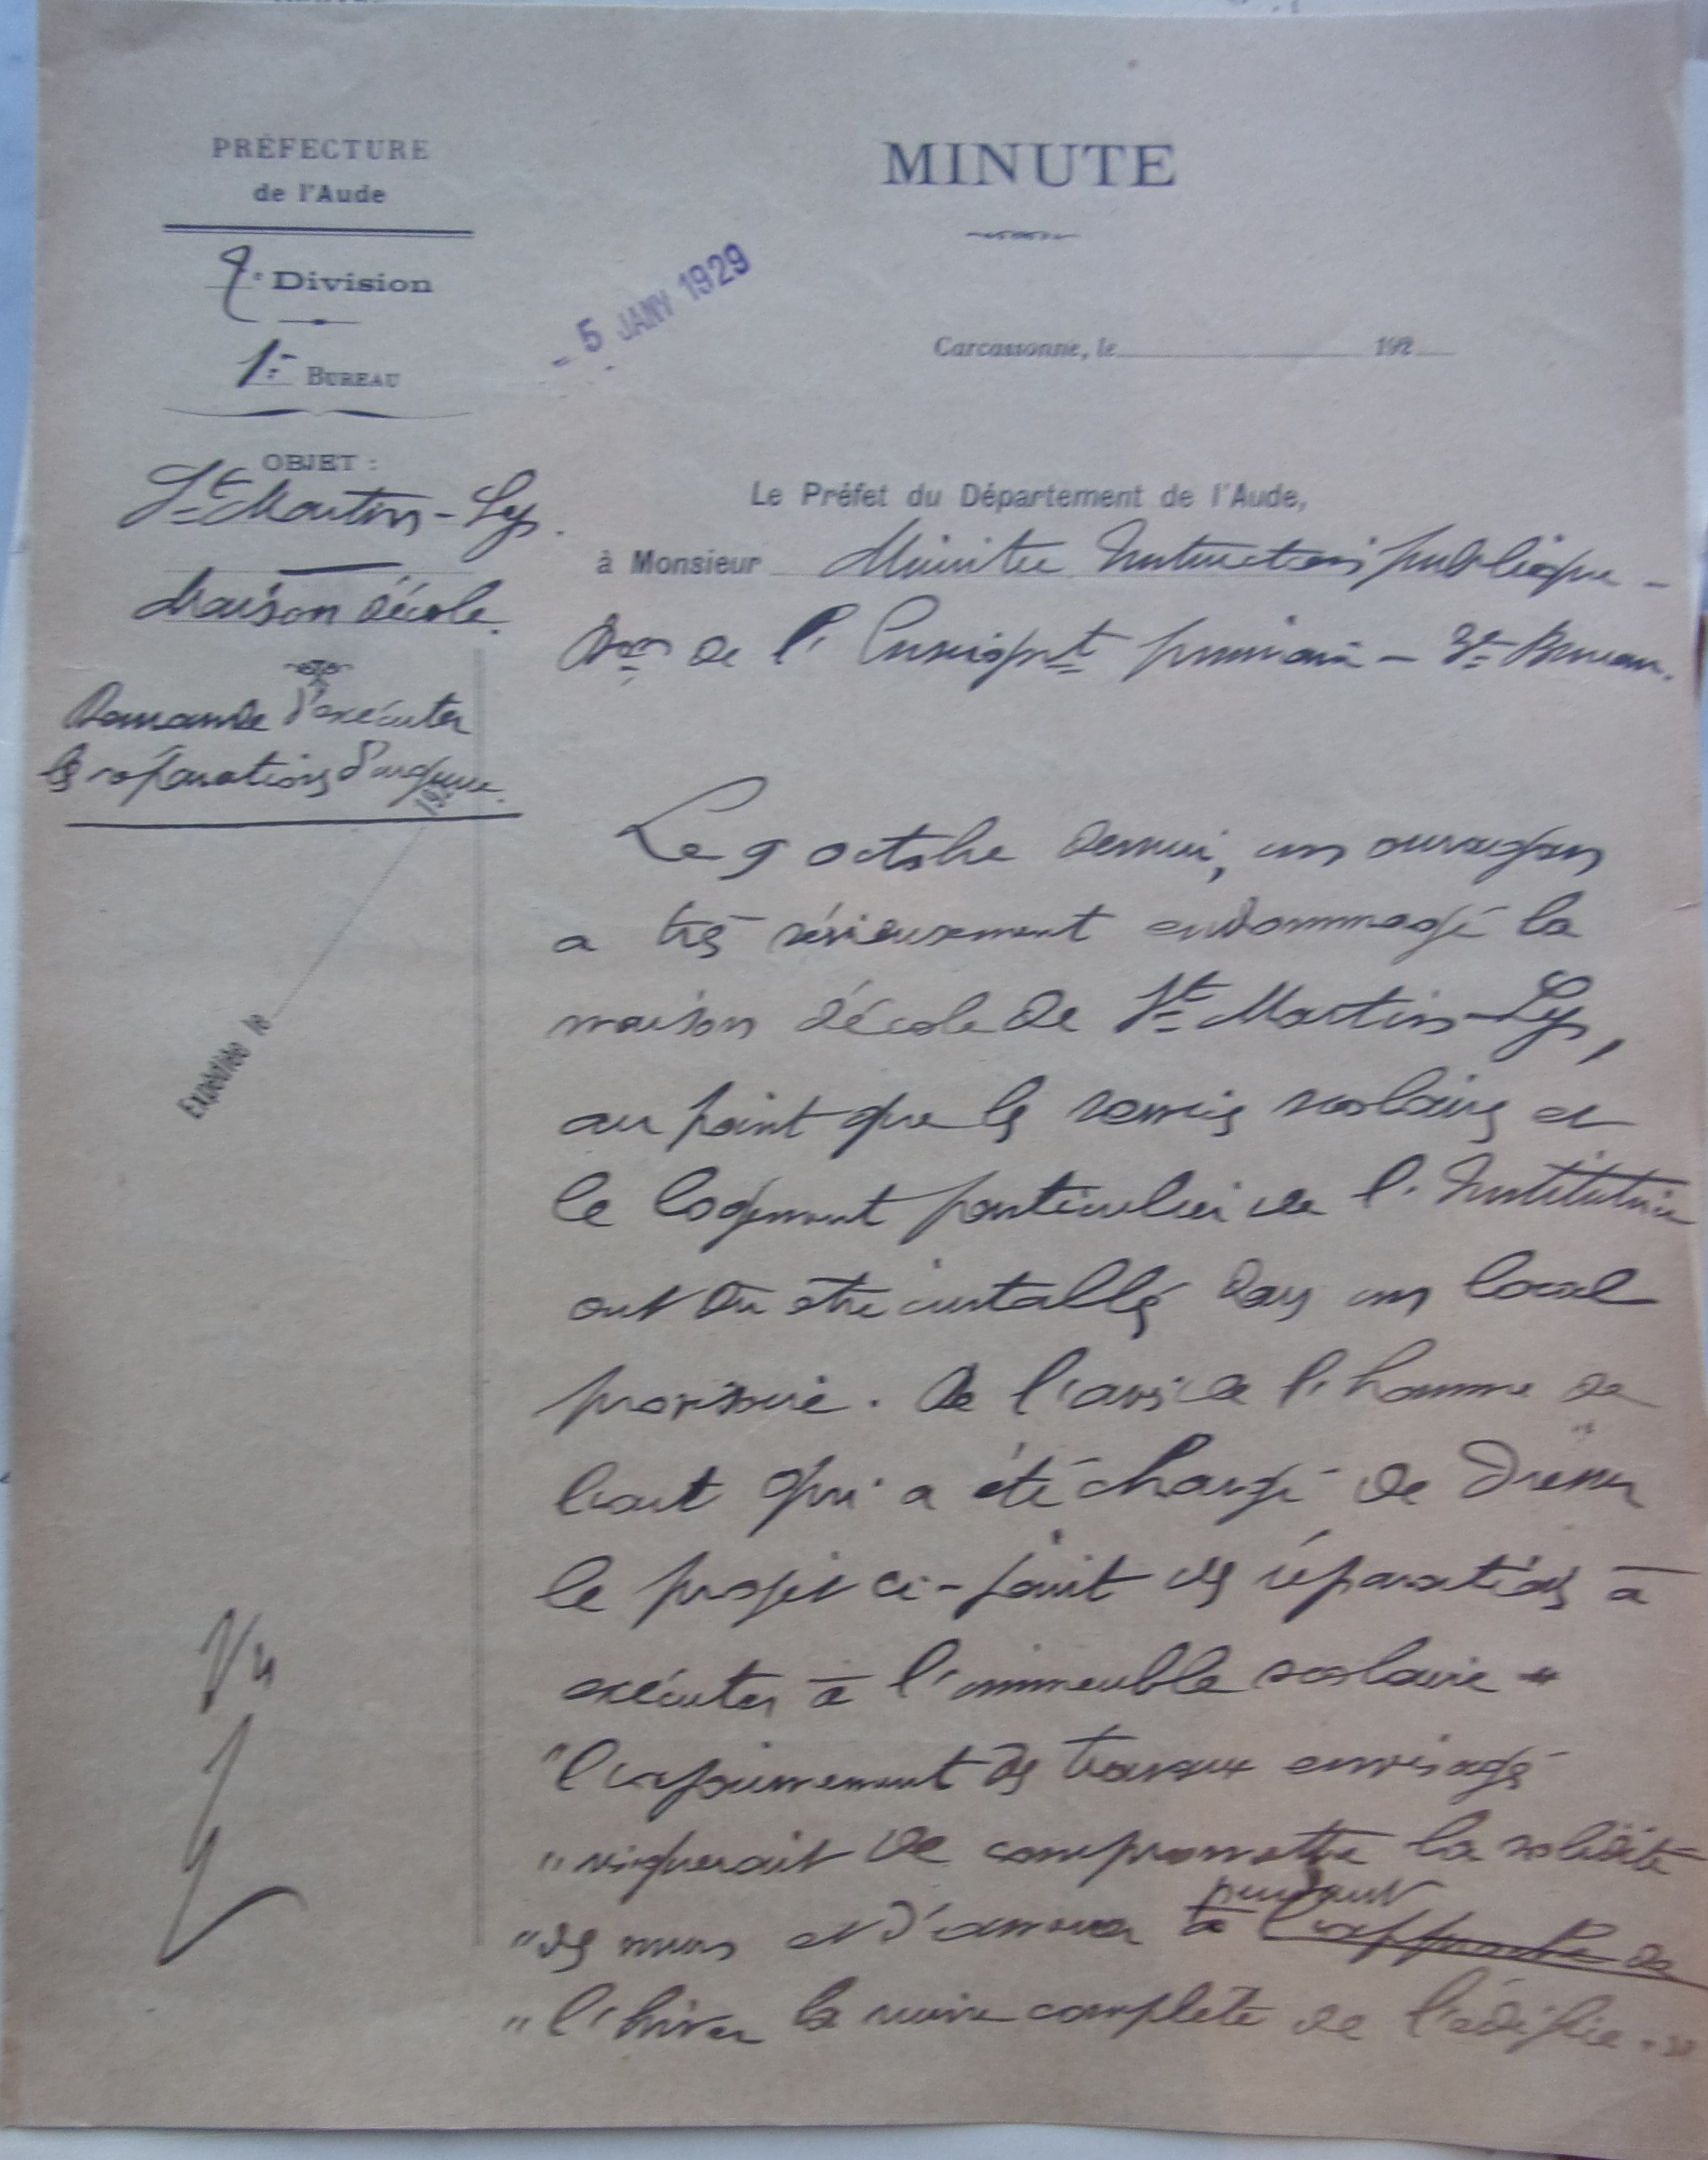 PRÉFECTURE
de l'Aude
2e Division
1er BUREAU
OBJET :
St Martin-Lys.
Maison d'école.
Demande d'exécuter
les réparations d'urgence.
192
Expédiée le
Vu
MINUTE
- 5 JANV 1929
Carcassonne, le 192
Le Préfet du Département de l'Aude,
à Monsieur Ministre Instruction publique -
Don de l'Enseignt primaire - 3e Bureau.
Le 9 octobre dernier, un ouragan
a très sérieusement endommagé la
maison d'école de St Martin-Lys,
au point que les services scolaires et
le logement particulier de l'Institutrice
ont dû être installés dans un local
provisoire. De l'avis de l'homme de
l'art qui a été chargé de dresser
le projet ci-joint des réparations à
exécuter à l'immeuble scolaire "
" l'ajournement des travaux envisagés
" risquerait de compromettre la solidité
pendant
" des murs et d'amener à l'approche de
" l'hiver la ruine complète de l'édifice. "